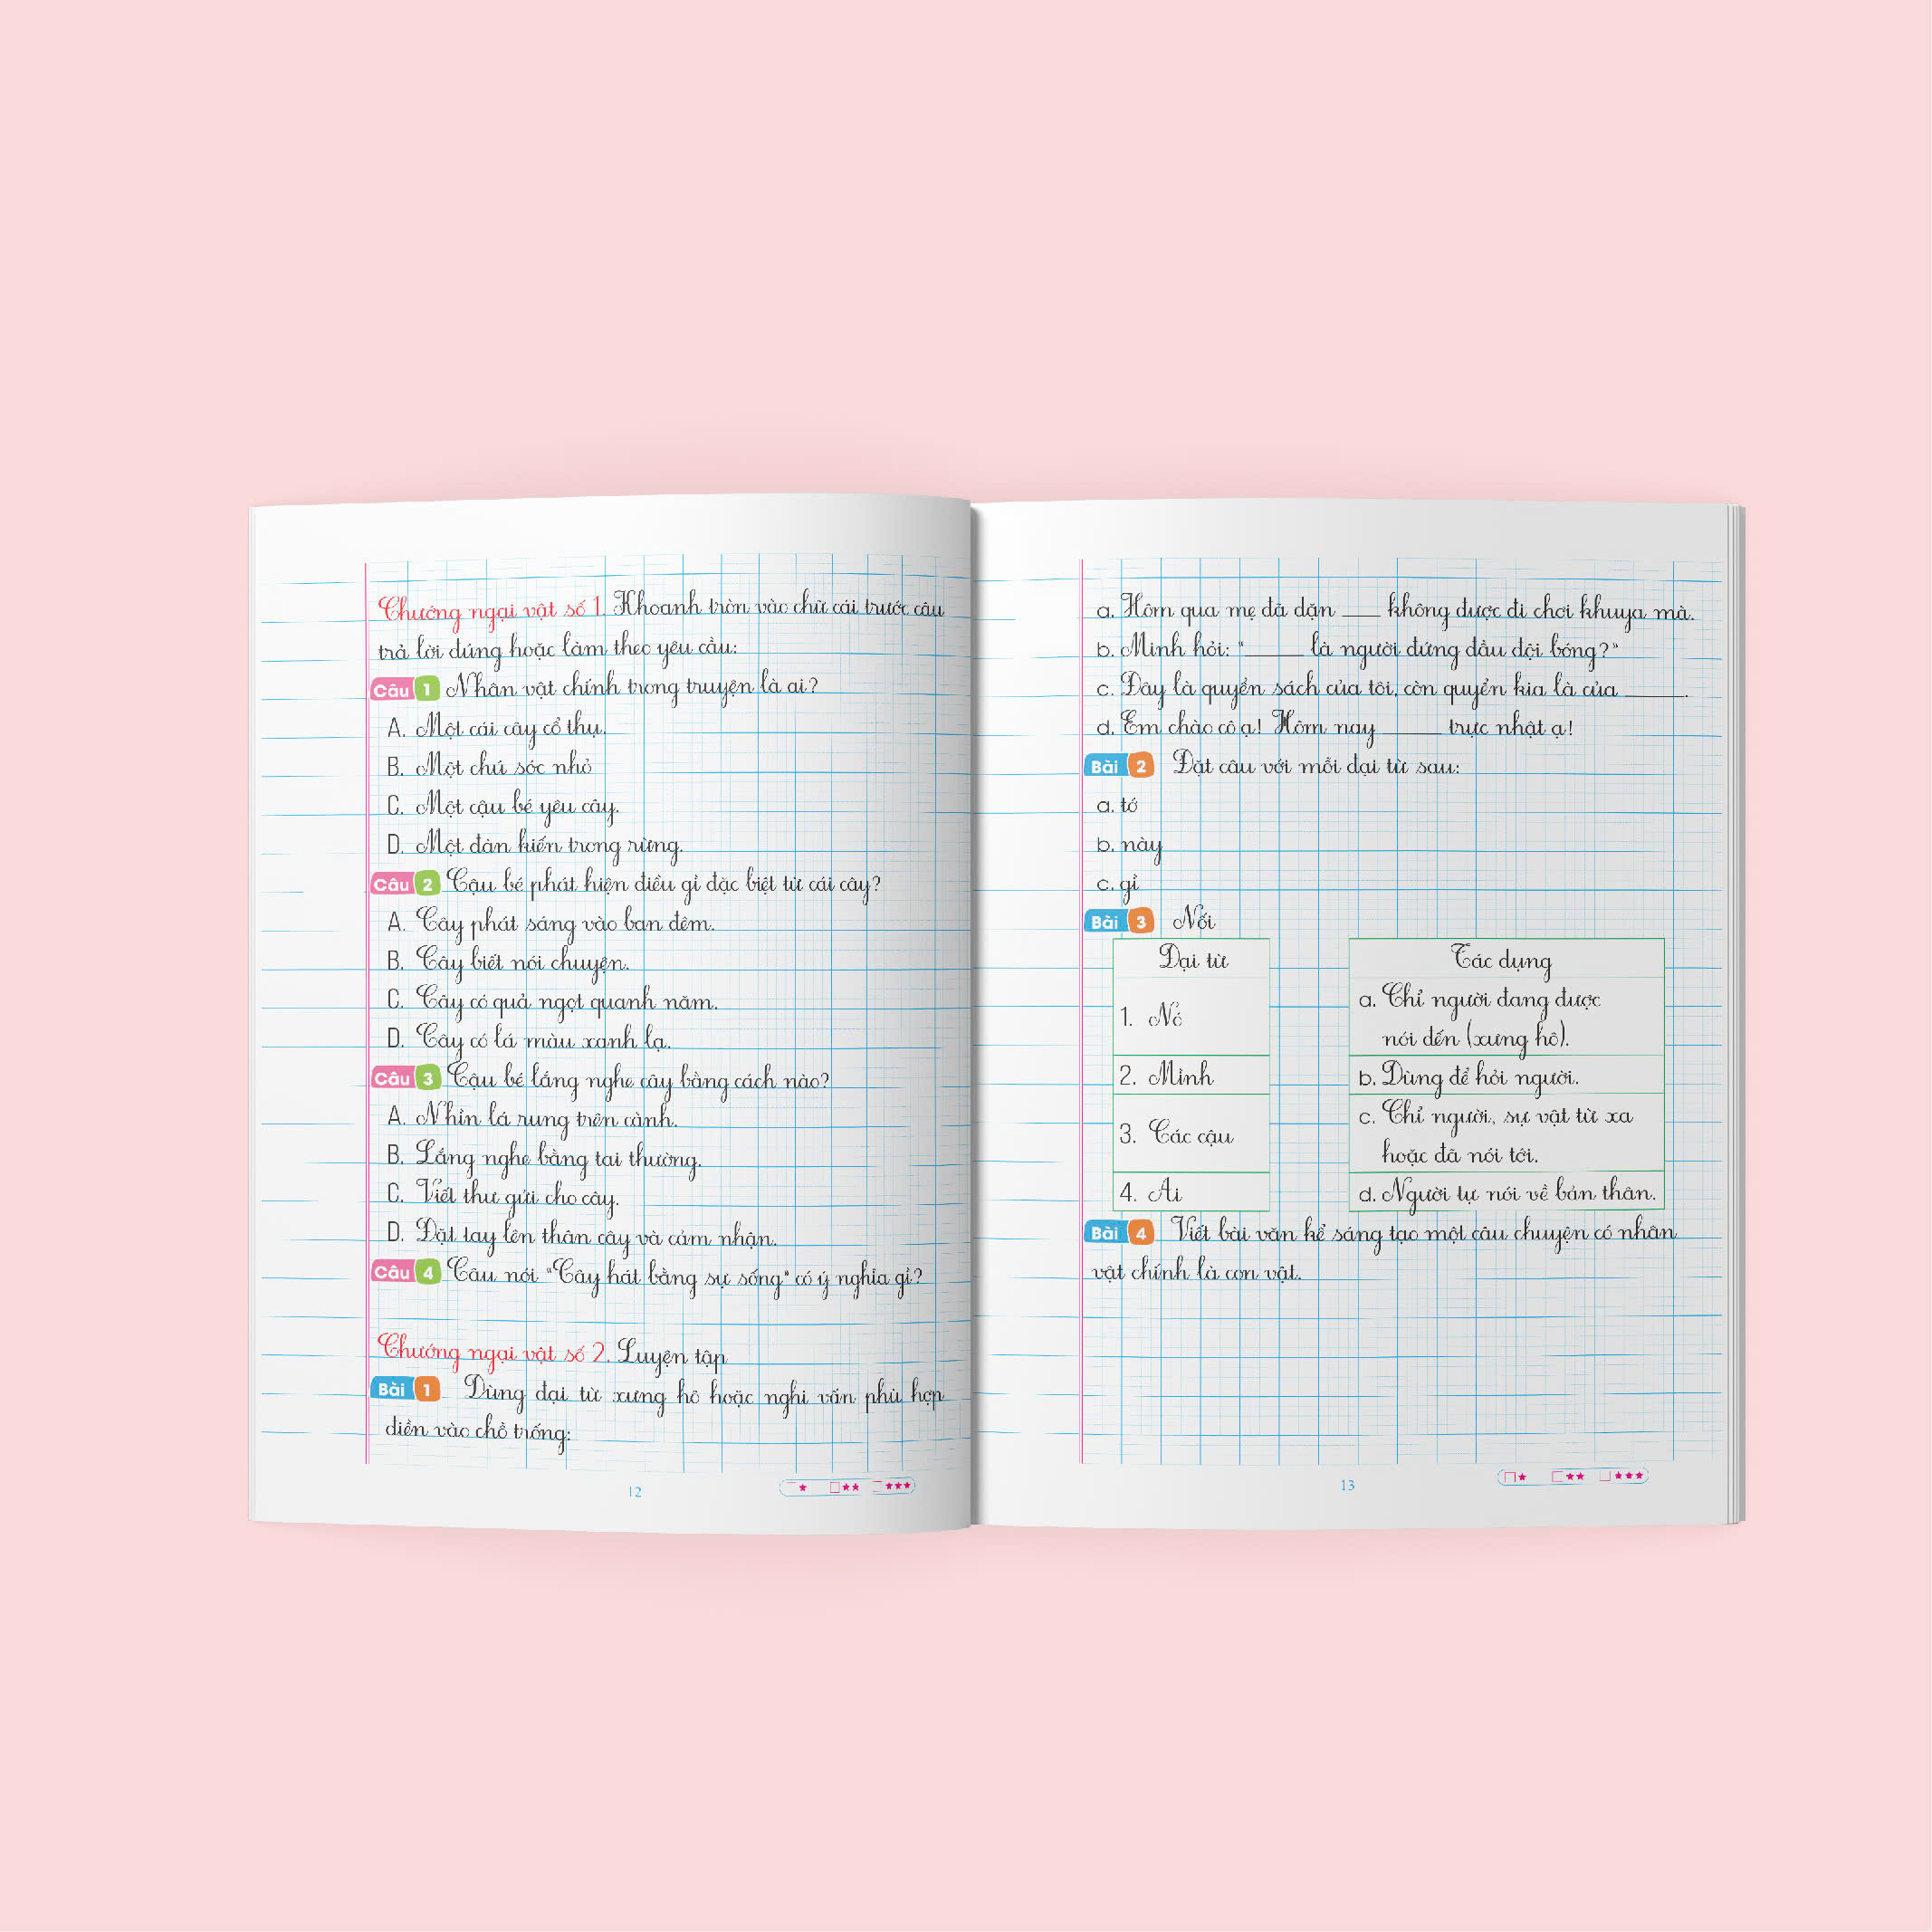 Chướng ngại vật số 1. Khoanh tròn vào chữ cái trước câu
trả lời đúng hoặc làm theo yêu cầu:
Câu 1 Nhân vật chính trong truyện là ai?
A. Một cái cây cổ thụ.
B. Một chú sóc nhỏ
C. Một cậu bé yêu cây.
D. Một đàn kiến trong rừng.
Câu 2 Cậu bé phát hiện điều gì đặc biệt từ cái cây?
A. Cây phát sáng vào ban đêm.
B. Cây biết nói chuyện.
C. Cây có quả ngọt quanh năm.
D. Cây có lá màu xanh lạ.
Câu 3 Cậu bé lắng nghe cây bằng cách nào?
A. Nhìn lá rung trên cành.
B. Lắng nghe bằng tai thường.
C. Viết thư gửi cho cây.
D. Đặt tay lên thân cây và cảm nhận.
Câu 4 Câu nói "Cây hát bằng sự sống" có ý nghĩa gì?
Chướng ngại vật số 2. Luyện tập
Bài 1 Dùng đại từ xưng hô hoặc nghi vấn phù hợp
điền vào chỗ trống:
12
a. Hôm qua mẹ đã dặn ___ không được đi chơi khuya mà.
b. Minh hỏi: "_____ là người đứng đầu đội bóng?"
c. Đây là quyển sách của tôi, còn quyển kia là của _____.
d. Em chào cô ạ! Hôm nay _____ trực nhật ạ!
Bài 2 Đặt câu với mỗi đại từ sau:
a. tớ
b. này
c. gì
Bài 3 Nối
Đại từ
1. Nó
2. Mình
3. Các cậu
4. Ai
Tác dụng
a. Chỉ người đang được
nói đến (xưng hô).
b. Dùng để hỏi người.
c. Chỉ người, sự vật từ xa
hoặc đã nói tới.
d. Người tự nói về bản thân.
Bài 4 Viết bài văn kể sáng tạo một câu chuyện có nhân
vật chính là con vật.
13